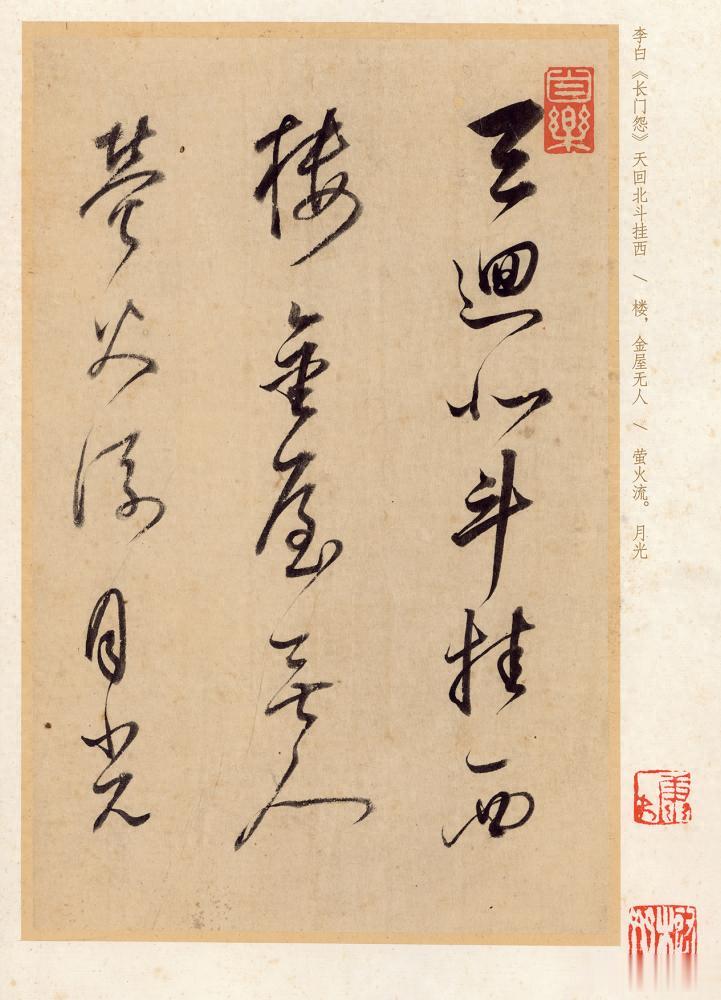 天迴北斗挂西
楼金屋无人
萤火流月光
李白《长门怨》天回北斗挂西 \ 楼，金屋无人 \ 萤火流。 月光